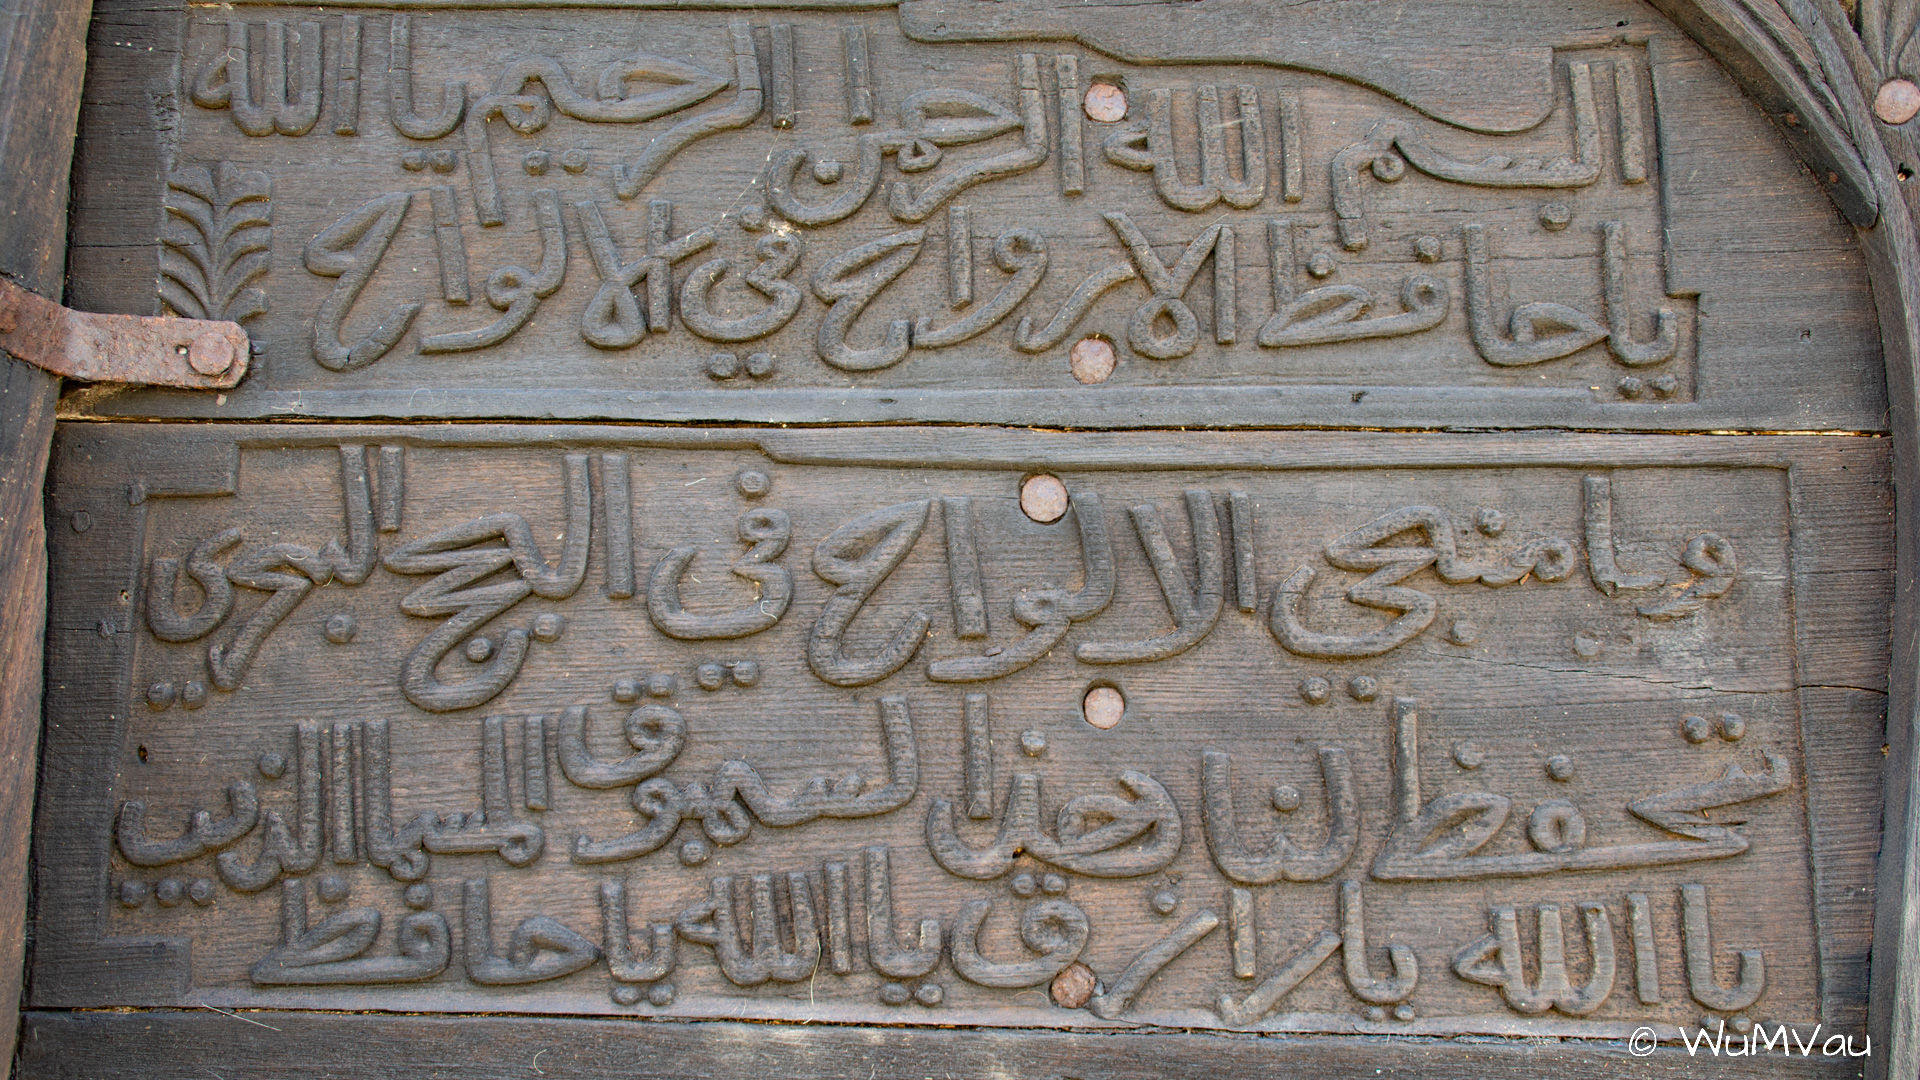 البسم الله الرحمن الرحيم يا الله
يا حافظ الارواح في الالواح
ويا منجي الالواح في الجج البحري
تحفظ لنا هذا لسمبوق المسما الذيب
يا الله يا رازق يا الله يا حافظ
© WuMVau